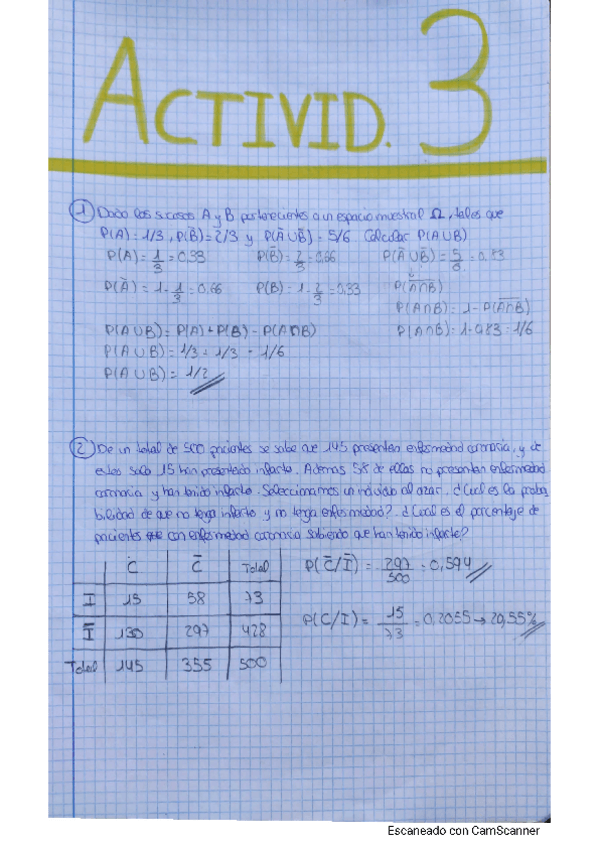 ACTIVID. 3
1 Dado los sucesos A y B pertenecientes a un espacio muestral Ω, tales que
P(A) = 1/3, P(B̄) = 2/3 y P(Ā ∪ B̄) = 5/6. Calcular P(A∪B)
P(A) = 1/3 = 0,33 P(B̄) = 2/3 = 0,66 P(Ā ∪ B̄) = 5/6 = 0,83
P(Ā) = 1 - 1/3 = 0,66 P(B) = 1 - 2/3 = 0,33 P(A̅∩̅B̅)
P(A∩B) = 1 - P(A̅∩̅B̅)
P(A∪B) = P(A) + P(B) - P(A∩B) P(A∩B) = 1 - 0,83 = 1/6
P(A∪B) = 1/3 + 1/3 - 1/6
P(A∪B) = 1/2
2 De un total de 500 pacientes se sabe que 145 presentan enfermedad coronaria, y de
estos solo 15 han presentado infarto. Además 58 de ellas no presentan enfermedad
coronaria y han tenido infarto. Seleccionamos un individuo al azar. ¿Cuál es la proba
bilidad de que no tenga infarto y no tenga enfermedad?. ¿Cuál es el porcentaje de
pacientes con enfermedad coronaria sabiendo que han tenido infarto?
C C̄ Total
I 15 58 73
Ī 130 297 428
Total 145 355 500
P(C̄/Ī) = 297/500 = 0,594
P(C/I) = 15/73 = 0,2055 → 20,55%
Escaneado con CamScanner